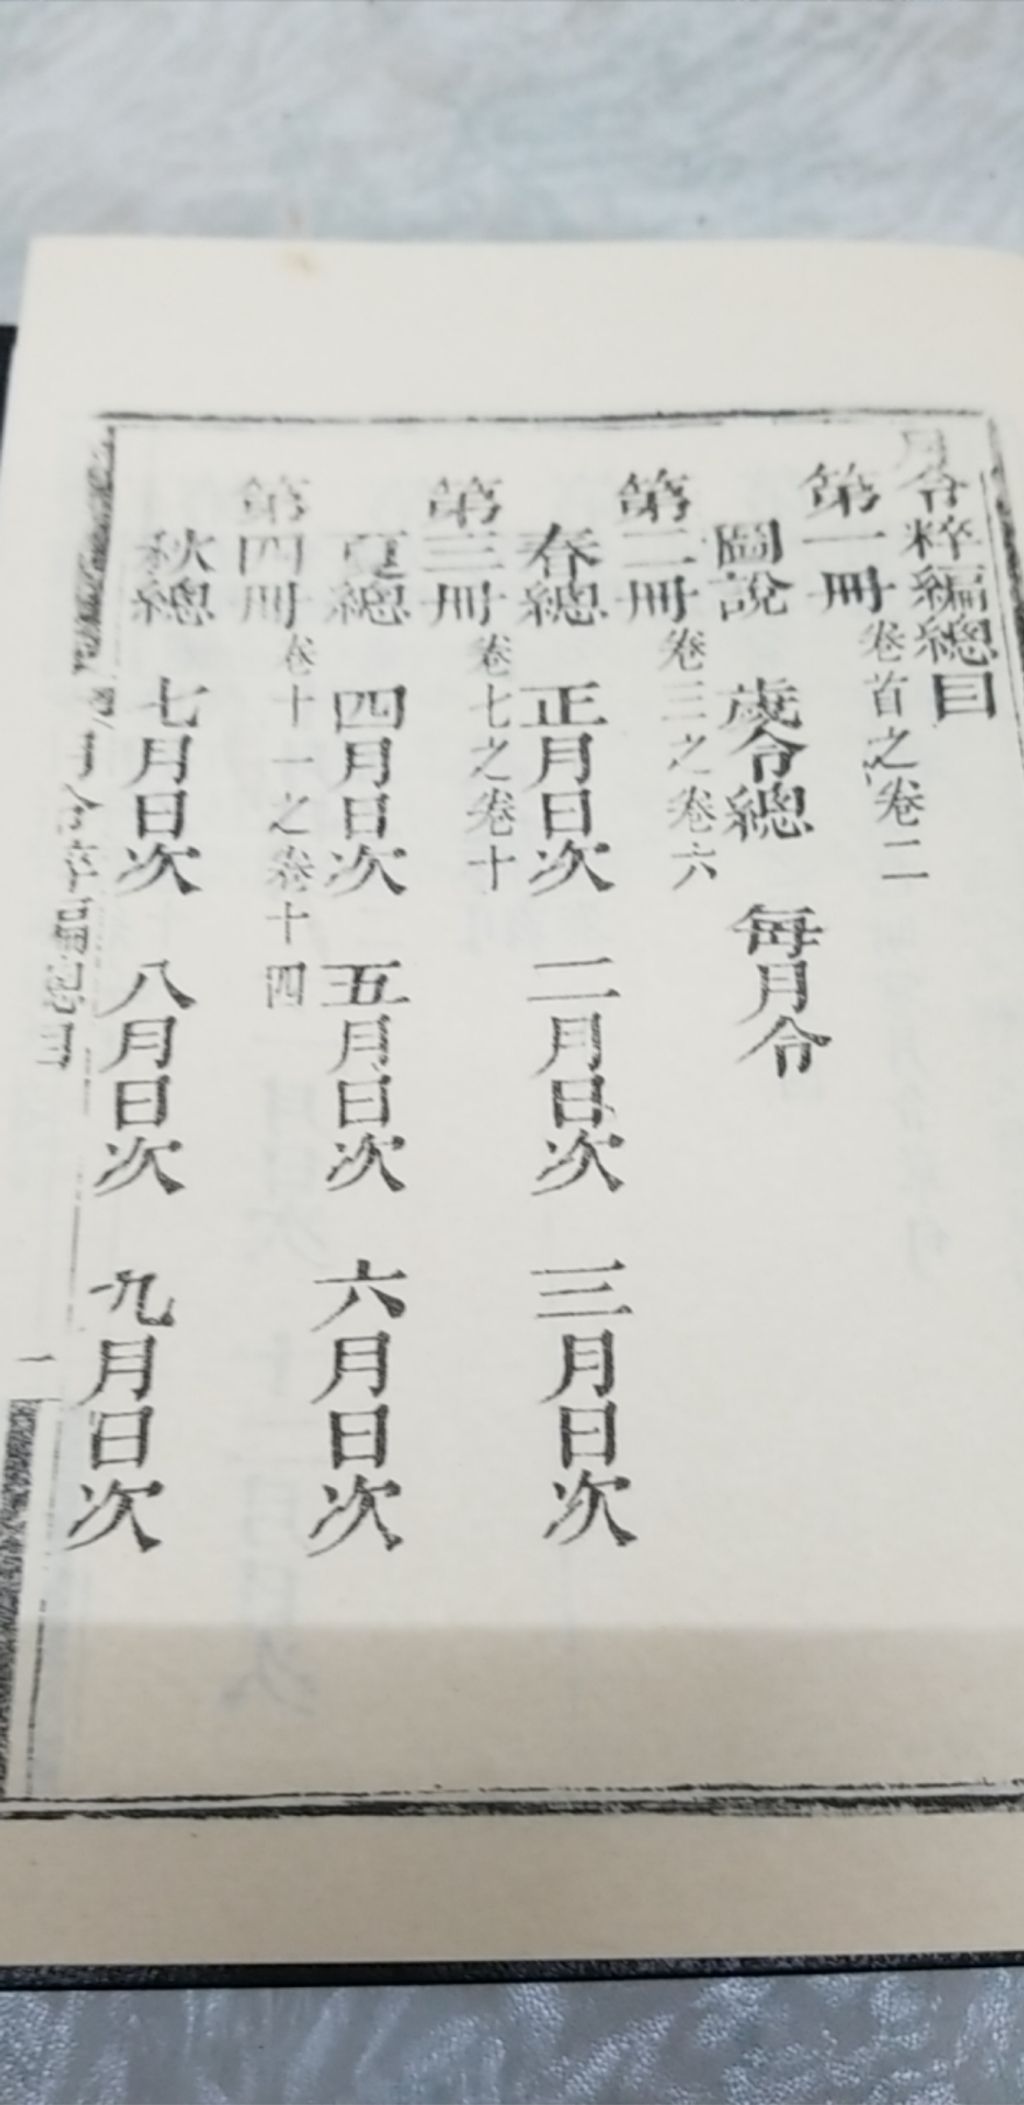 月令粹編總目
第一冊 卷首之卷二
圖說 歲令總 每月令
第二冊 卷三之卷六
春總 正月日次 二月日次 三月日次
第三冊 卷七之卷十
夏總 四月日次 五月日次 六月日次
第四冊 卷十一之卷十四
秋總 七月日次 八月日次 九月日次
月令粹編總目 一